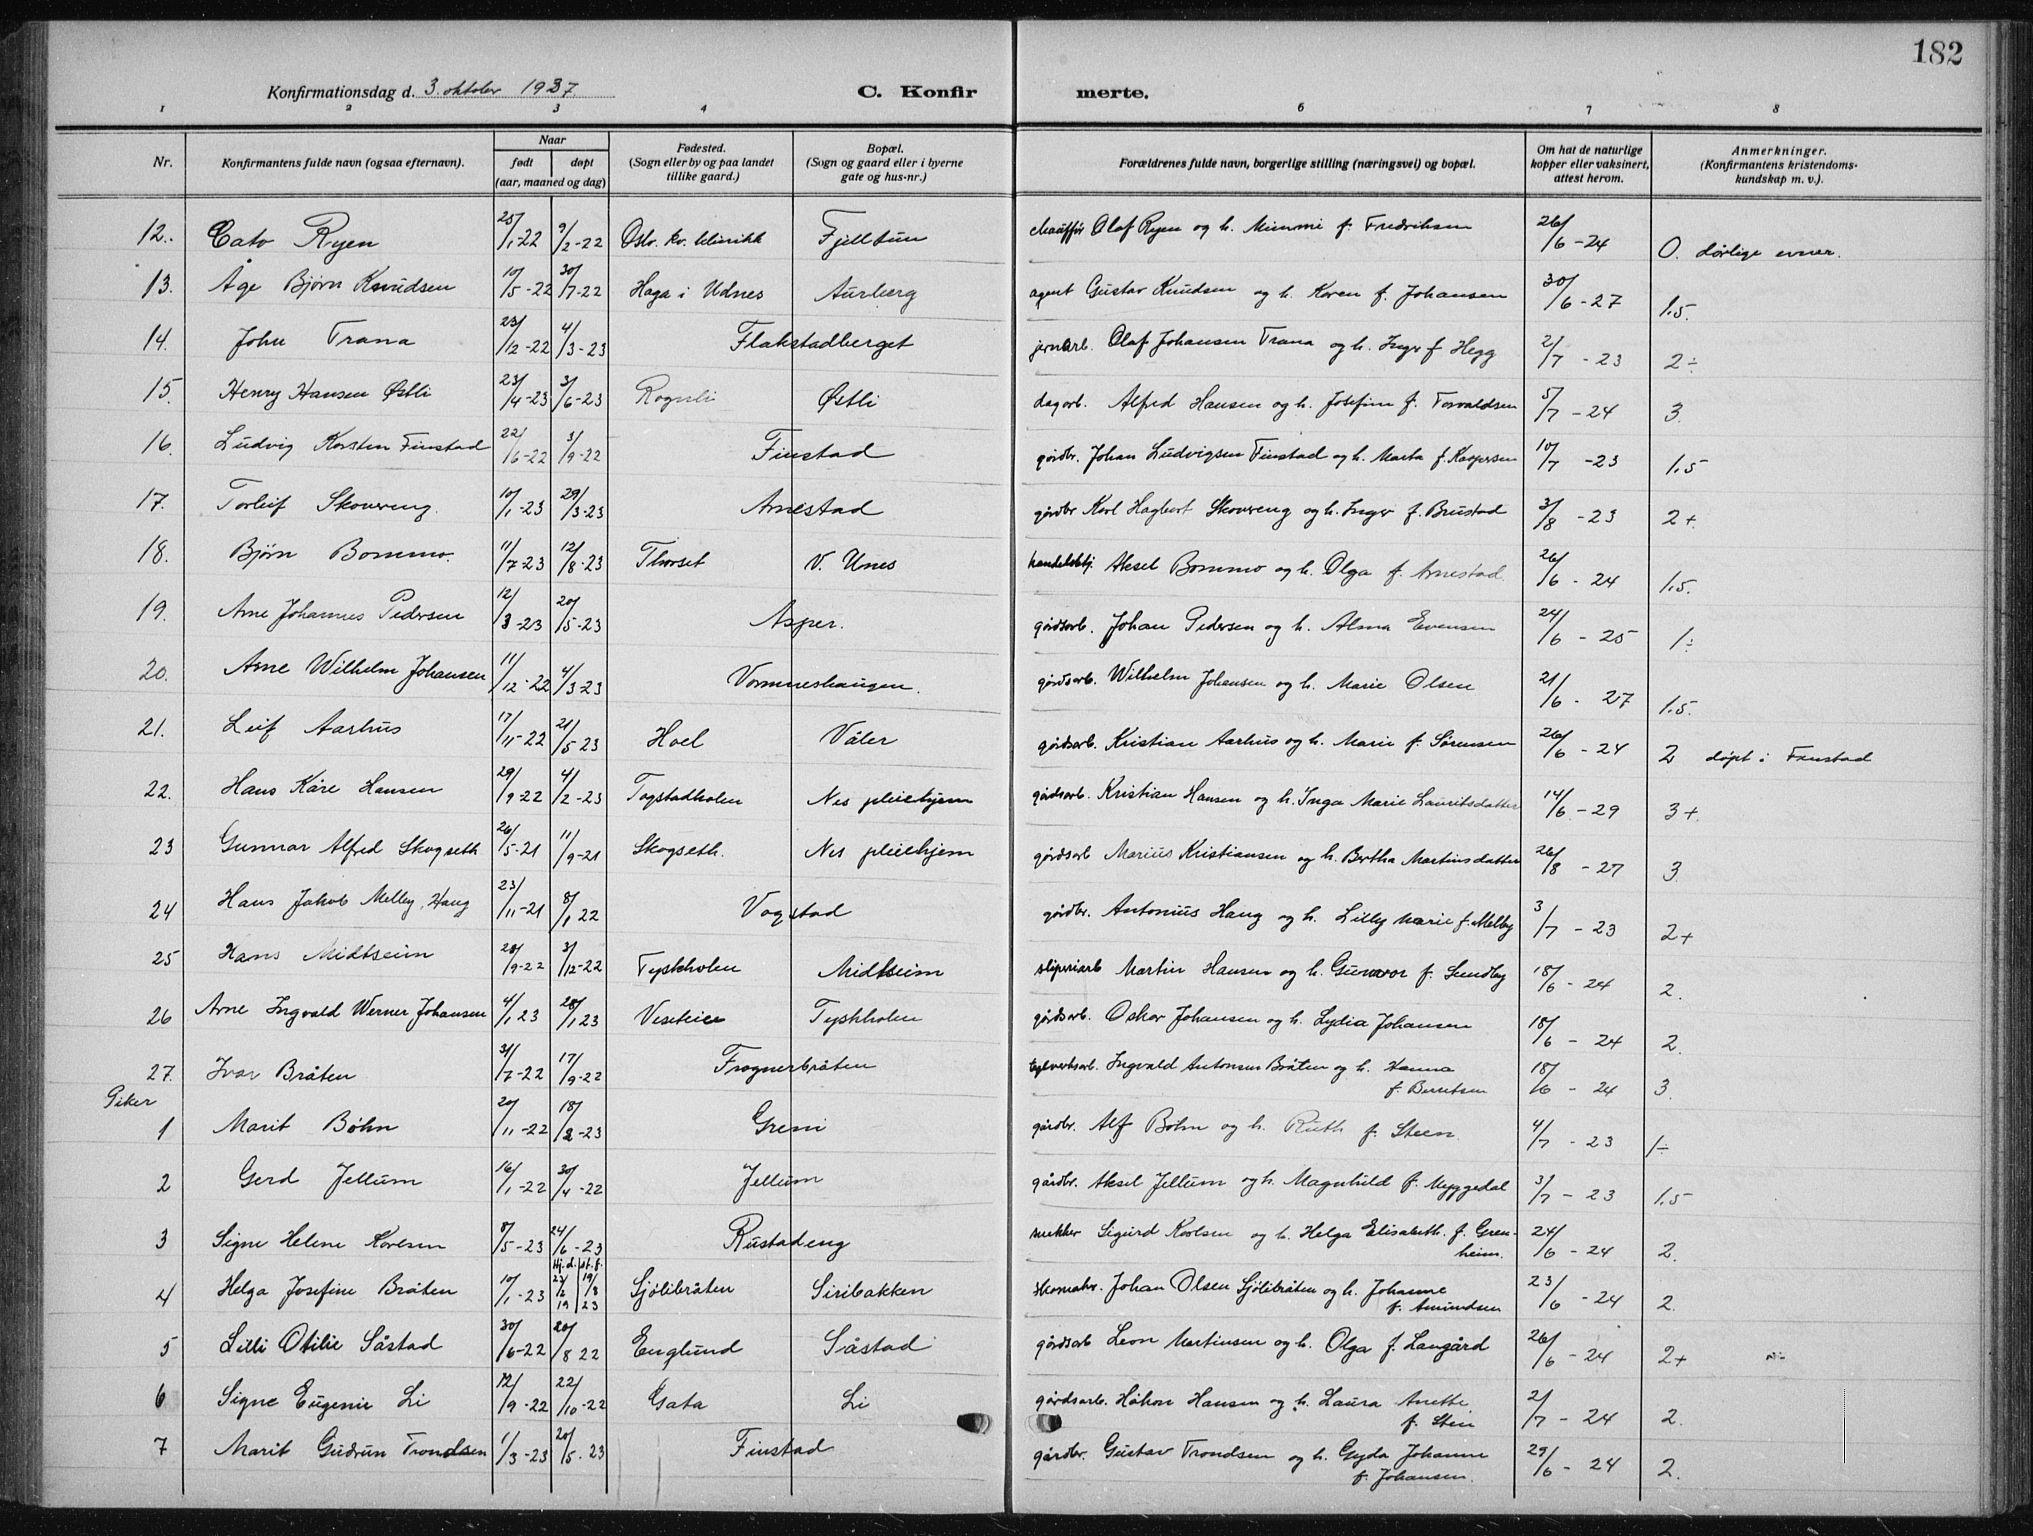 182
Konfirmationsdag d. 3. oktober 1937. C. Konfir merte.
1 2 3 4 6 7 8
Nr. Konfirmantens fulde navn (ogsaa efternavn). Naar født døpt (aar, maaned og dag) Fødested. (Sogn eller by og paa landet tillike gaard.) Bopæl. (Sogn og gaard eller i byerne gate og hus-nr.) Forældrenes fulde navn, borgerlige stilling (næringsvei) og bopæl. Om hat de naturlige kopper eller vaksinert, attest herom. Anmerkninger. (Konfirmantens kristendoms-kundskap m. v.).
12. Cato Ryen 25/1-22 9/2-22 Oslo kv. klinikk Fjelltun chauffør Olaf Ryen og h. Mimmi f. Fredriksen 26/6-24 0. dårlige evner.
13. Åge Bjørn Knudsen 10/5-22 30/7-22 Haga i Udnes Aurberg agent Gustav Knudsen og h. Karen f. Johansen 30/6-27 1.5.
14. John Trana 23/12-22 4/3-23 Flakstadberget jernarb. Olaf Johansen Trana og h. Inger f. Hegg 2/7-23 2÷
15. Henry Hansen Østli 23/4-23 3/6-23 Rognli Østli dagarb. Alfred Hansen og h. Josefine f. Torvaldsen 5/7-24 3.
16. Ludvig Karsten Finstad 22/6-22 3/9-22 Finstad gårdbr. Johan Ludvigsen Finstad og h. Marta f. Kaspersen 10/7-23 1.5
17. Torleif Skovereng. 10/1-23 29/3-23 Arnestad gårdbr Karl Hagbart Skovereng og h. Inger f. Brustad 3/8-23 2+.
18. Bjørn Bommo. 11/7-23 12/8-23 Thorset V. Unes handelsbtj. Aksel Bommo og h. Olga f. Arnestad. 26/6-24 1.5.
19. Arne Johannes Pedersen 12/3-23 20/5-23 Asper. gårdsarb. Johan Pedersen og h. Alma Evensen 24/6-25 1÷
20. Arne Wilhelm Johansen 11/12-22 4/3-23 Vormneshaugen. gårdsarb. Wilhelm Johansen og h. Marie Olsen 21/6-27 1.5.
21. Leif Aarhus 17/11-22 21/5-23 Hoel Våler gårdsarb. Kristian Aarhus og h. Marie f. Sørensen 26/6-24 2 døpt i Finstad
22. Hans Kåre Hansen 29/9-22 4/2-23 Togstadholen Nes pleiehjem gårdsarb. Kristian Hansen og h. Inga Marie Lauritsdatter 14/6-29 3+.
23 Gunnar Alfred Skogseth 26/5-21 11/9-21 Skogseth. Nes pleiehjem gårdsarb Marius Kristiansen og h. Bertha Martinsdatter 26/8-27 3.
24 Hans Jakob Melby Haug 23/11-21 8/1 22 Vogstad gårdbr. Antonius Haug og h. Lilly Marie f. Melby 3/7-23 2+
25 Hans Midtseim 28/9-22 3/12-22 Tyskholen Midtseim sliperiarb Martin Hansen og h. Gunvor f. Sundby 18/6-24 2.
26 Arne Ingvald Werner Johansen 4/1 23 28/1 23 Veseteie Tyskholen gårdsarb. Oskar Johansen og h. Lydia Johansen 18/6-24 2.
27. Ivar Bråten 31/7-22 17/9-22 Frognerbråten teglverksarb. Ingvald Antonsen Bråten og h. Hanna f. Berntsen 18/6-24 3.
Piker
1 Marit Bøhn 20/11-22 18/2-23 Greni gårdbr. Alf Bøhn og h. Ruth f. Steen. 4/7-23 1÷
2 Gerd Jellum 16/1-22 30/4-22 Jellum gårdbr. Aksel Jellum og h. Magnhild f. Myggedal 3/7-23 1.5
3 Signe Helene Karlsen 8/5-23 24/6-23 Rustadeng snekker Sigurd Karlsen og h. Helga Elisabeth f. Gren-heim. 24/6-24 2.
4 Helga Josefine Bråten 10/1-23 Hj. d. st. f. Sjølibråten Siribakken skomaker. Johan Olsen Sjølibråten og h. Johanne f. Amundsen 23/6-24 2.
5 Lilli Otilie Såstad 30/6-22 20/8 22 Englund Såstad gårdsarb Leon Martinsen og h. Olga f. Langård 26/6-24 2+
6 Signe Eugenie Li 12/9-22 22/10-22 Gata Li gårdsarb. Håkon Hansen og h. Laura Anette f. Sten 2/7-24 2.
7 Marit Gudrun Trondsen 1/3-23 20/5-23 Finstad gårdbr. Gustav Trondsen og h. Gyda Johanne f. Johansen. 29/6-24 2.